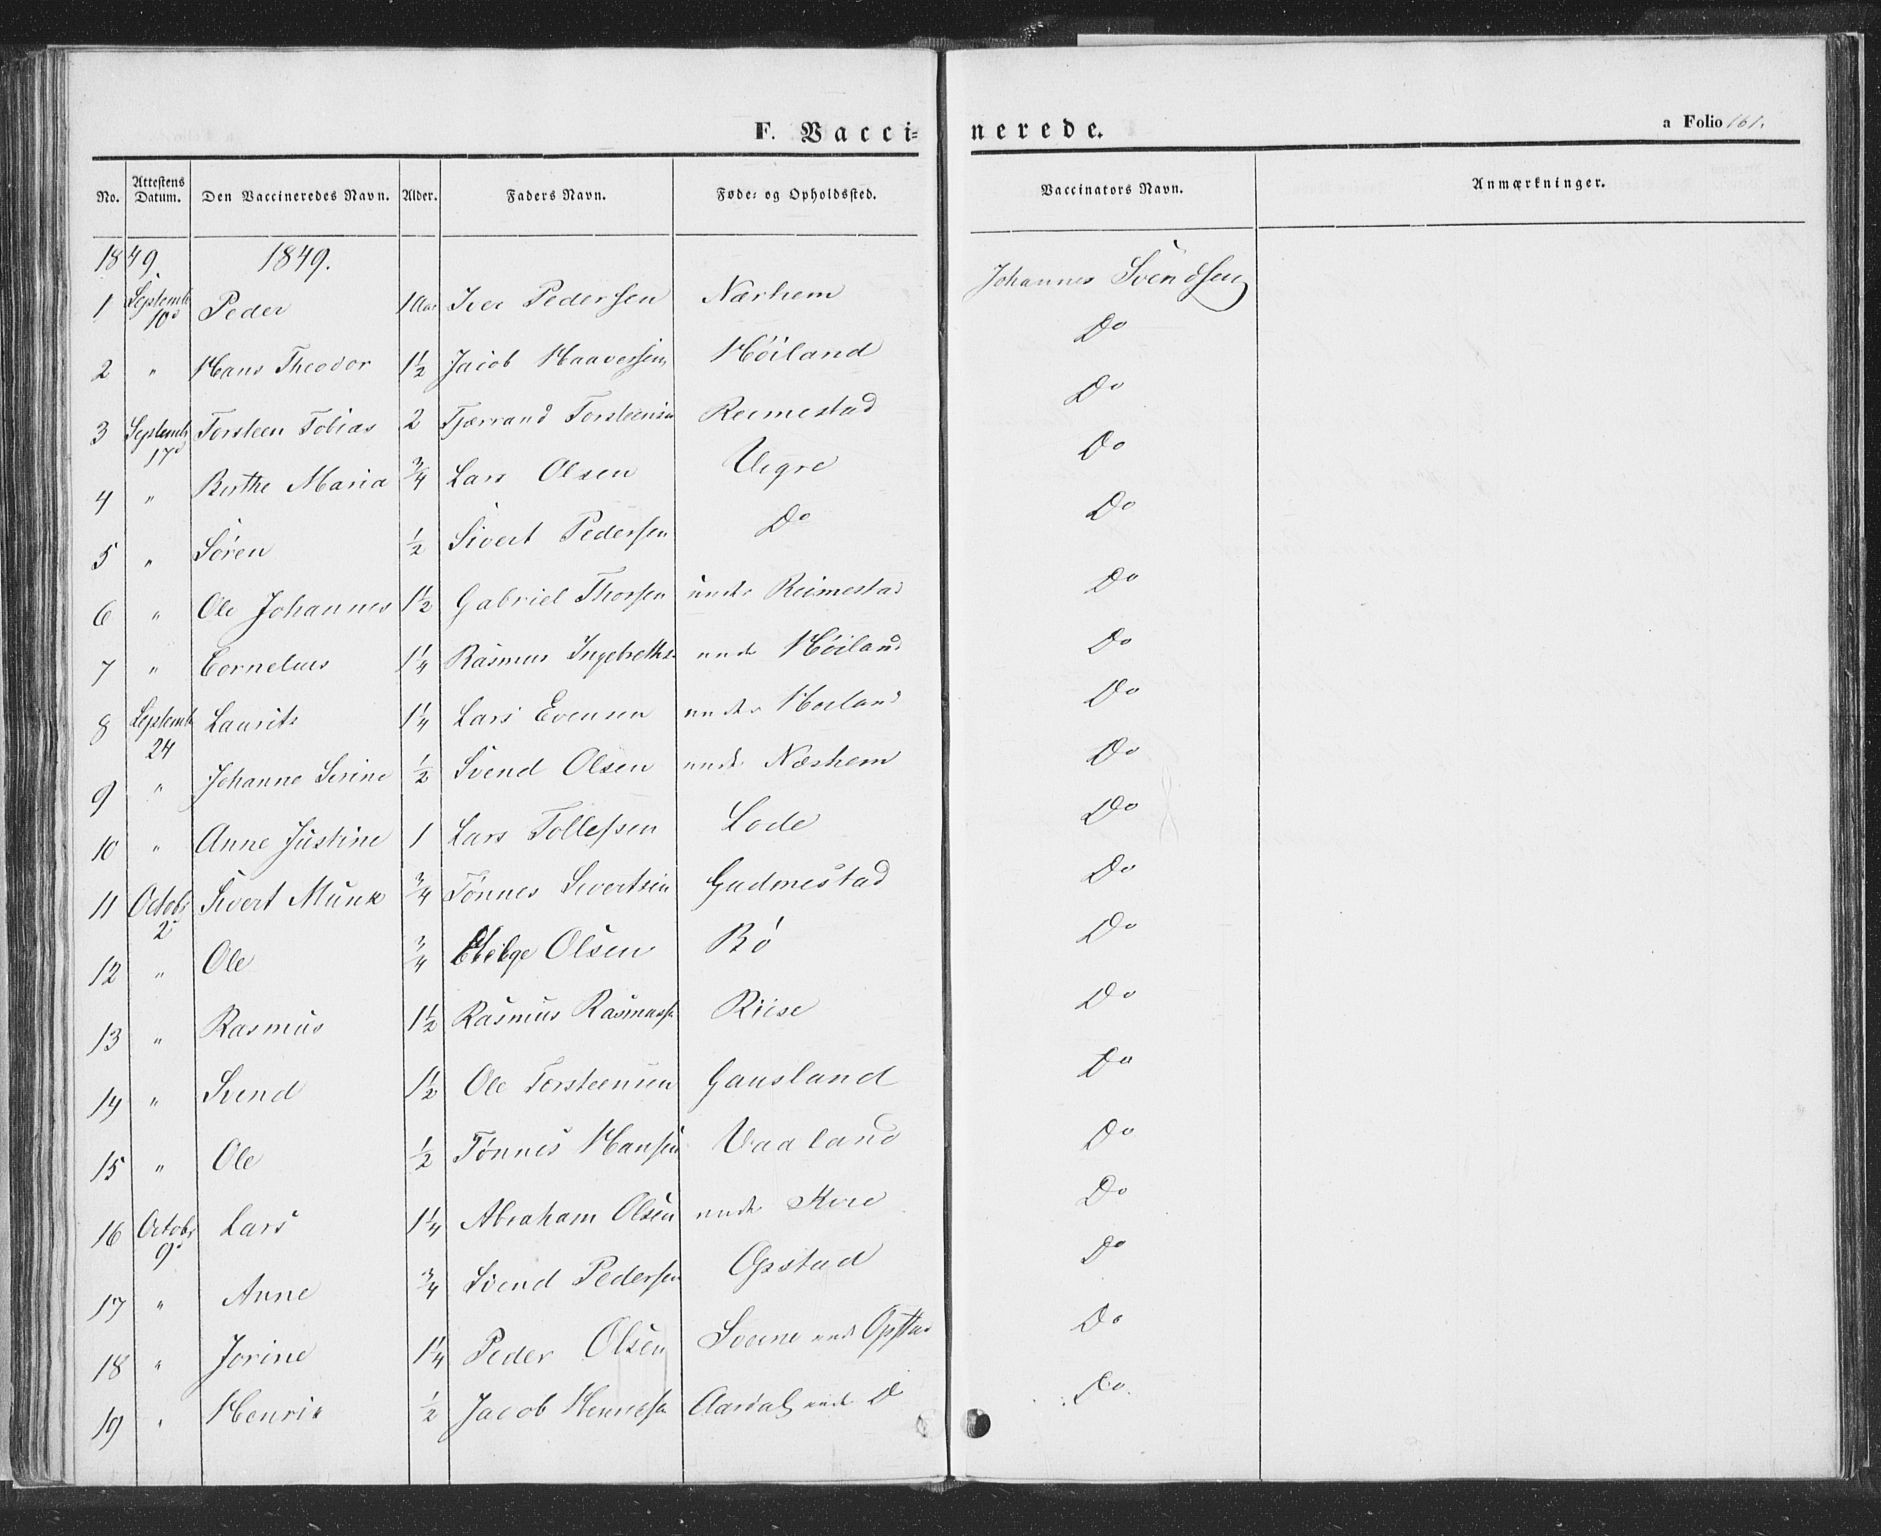 F. Vaccinerede.
a Folio 161.
No. Attestens Datum. Den Vaccineredes Navn. Alder. Faders Navn. Føde- og Opholdssted. Vaccinators Navn. Anmærkninger.
1849 1849.
1 Septemb 10d Peder 1 Aar Iver Pedersen Nærhem Johannes Svendsen
2 " Hans Theodor 1½ Jacob Haaversen Høiland Do
3 Septemb 17d Torsteen Tobias 2 Tjerrand Torsteensen Reimestad Do
4 " Berthe Maria ¾ Lars Olsen Uigre Do
5 " Søren ½ Sivert Pedersen Do Do
6 " Ole Johannes 1½ Gabriel Thorsen under Reimestad Do
7 " Cornelius 1¼ Rasmus Ingebreths. under Høiland Do
8 Septemb 24 Laurits 1¼ Lars Evensen under Høiland Do
9 " Johanne Serine ½ Svend Olsen under Nærhem Do
10 " Anne Justine 1 Lars Tollefsen Lode Do
11 Octobr 2d Sivert Munk ¾ Tønnes Sivertsen Gudmestad Do
12 " Ole ¾ Helge Olsen Bø Do
13 " Rasmus 1½ Rasmus Rasmuss. Riise Do
14 " Svend 1½ Ole Torsteensen Gausland Do
15 " Ole ½ Tønnes Hansen Vaaland Do
16 Octobr 9d Lars 1¼ Abraham Olsen under Kvie Do
17 " Anne ¾ Svend Pedersen Opstad Do
18 " Jorine 1¼ Peder Olsen under Opstad Do
19 " Henrik ½ Jacob Aarsdal under D Do